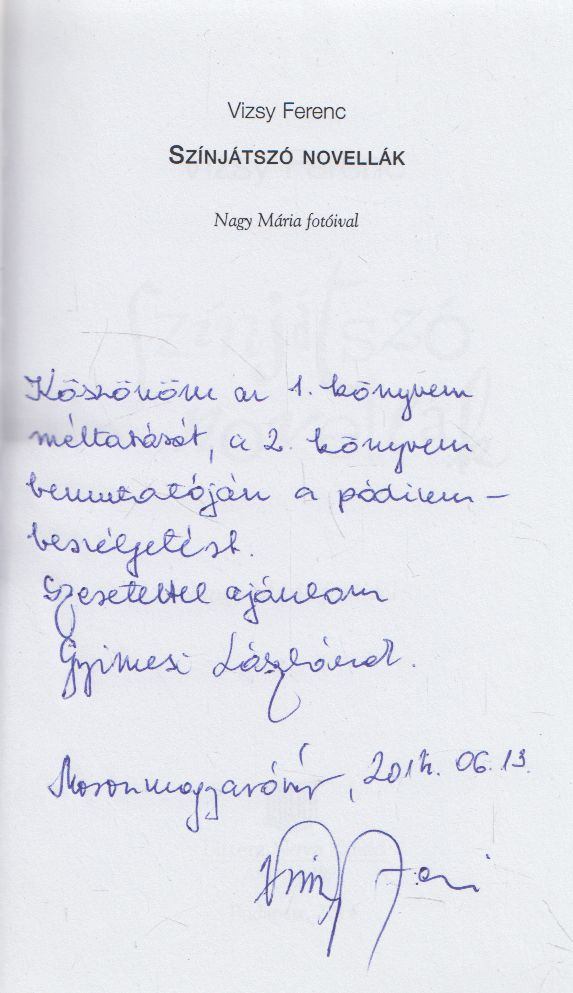 Vizsy Ferenc
SZÍNJÁTSZÓ NOVELLÁK
Nagy Mária fotóival
Köszönöm az 1. könyvem
méltatását, a 2. könyvem
bemutatóján a pódium-
beszélgetést.
Szeretettel ajánlom
Gyimesi Lászlónak.
Mosonmagyaróvár, 2014. 06. 13.
Vizsy Feri